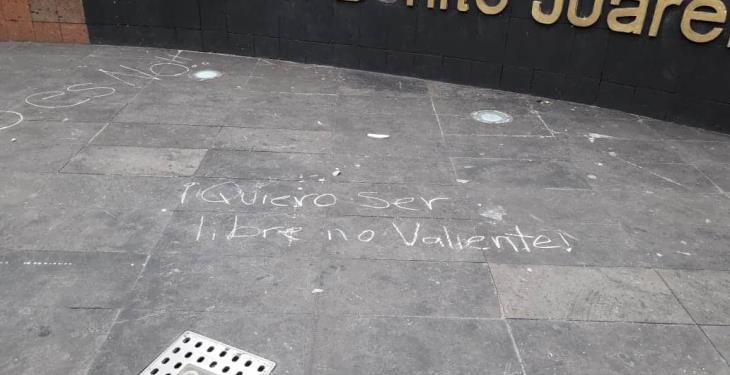 Benito Juáre
es No
¡¡Quiero ser
libre no Valiente!